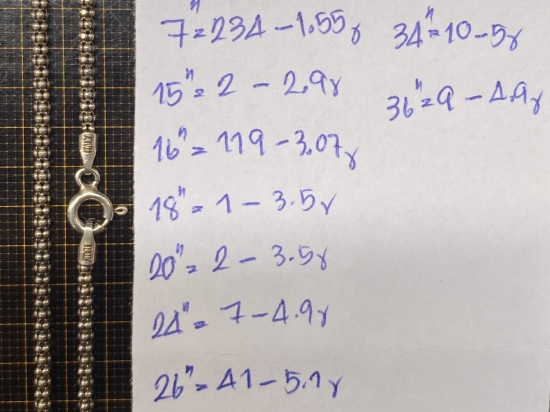 7"=234-1.55g
15"=2-2.9g
16"=119-3.07g
18"=1-3.5g
20"=2-3.5g
24"=7-4.9g
26"=41-5.1g
34"=10-5g
36"=9-4.9g